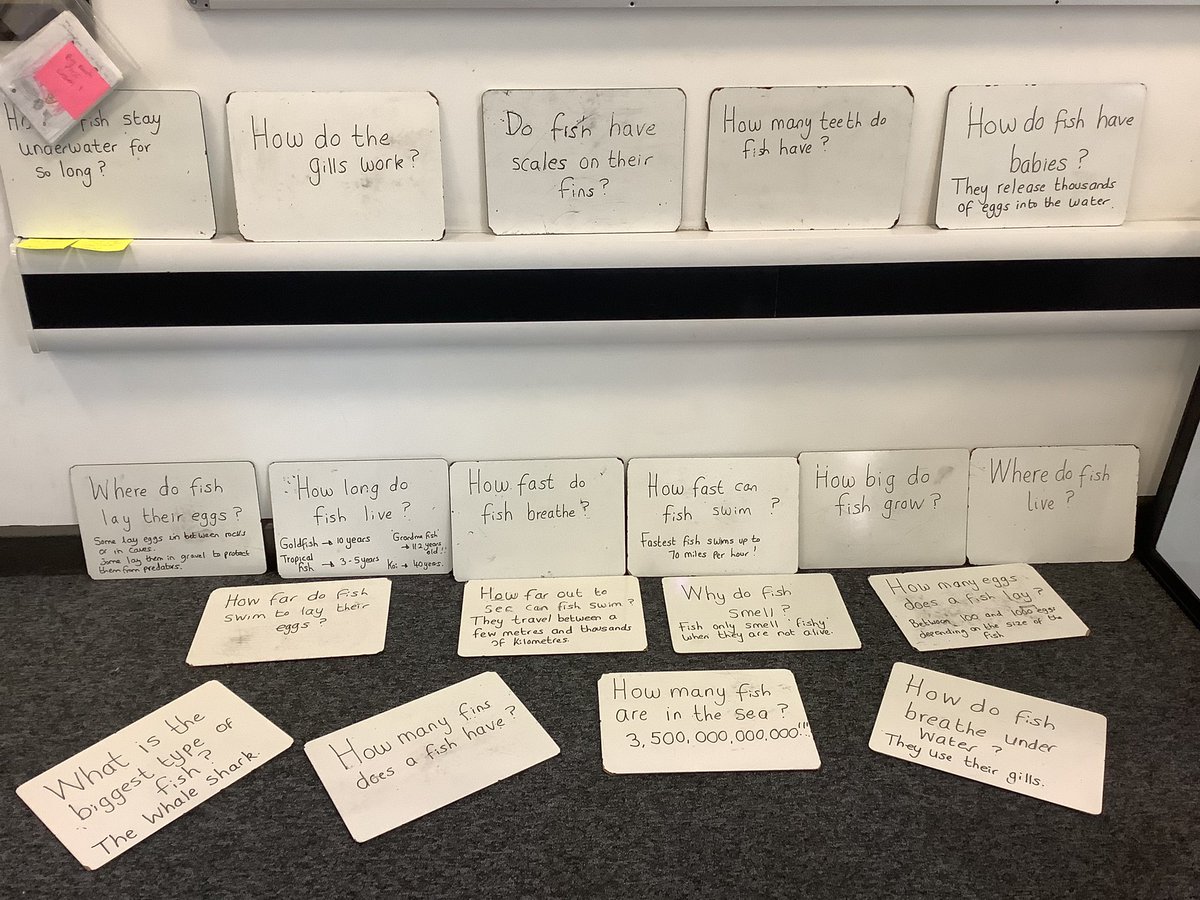 fish stay
underwater for
so long?
How do the
gills work?
Do fish have
scales on their
fins?
How many teeth do
fish have?
How do fish have
babies?
They release thousands
of eggs into the water.
Where do fish
lay their eggs?
Some lay eggs in between rocks
or in caves.
Some lay them in gravel to protect
them from predators.
How long do
fish live?
Goldfish → 10 years
Tropical
fish → 3-5 years
"Grandma fish"
→ 112 years
old!!
Koi → 40 years.
How fast do
fish breathe?
How fast can
fish swim ?
Fastest fish swims up to
70 miles per hour!
How big do
fish grow?
Where do fish
live?
How far do fish
swim to lay their
eggs?
How far out to
sea can fish swim?
They travel between a
few metres and thousands
of kilometres.
Why do fish
smell?
Fish only smell 'fishy'
when they are not alive.
How many eggs
does a fish lay?
Between 100 and 1000 eggs
depending on the size of the
fish
What is the
biggest type of
fish?
The Whale Shark.
How many fins
does a fish have?
How many fish
are in the sea?
3,500,000,000,000!!!
How do fish
breathe under
water?
They use their gills.